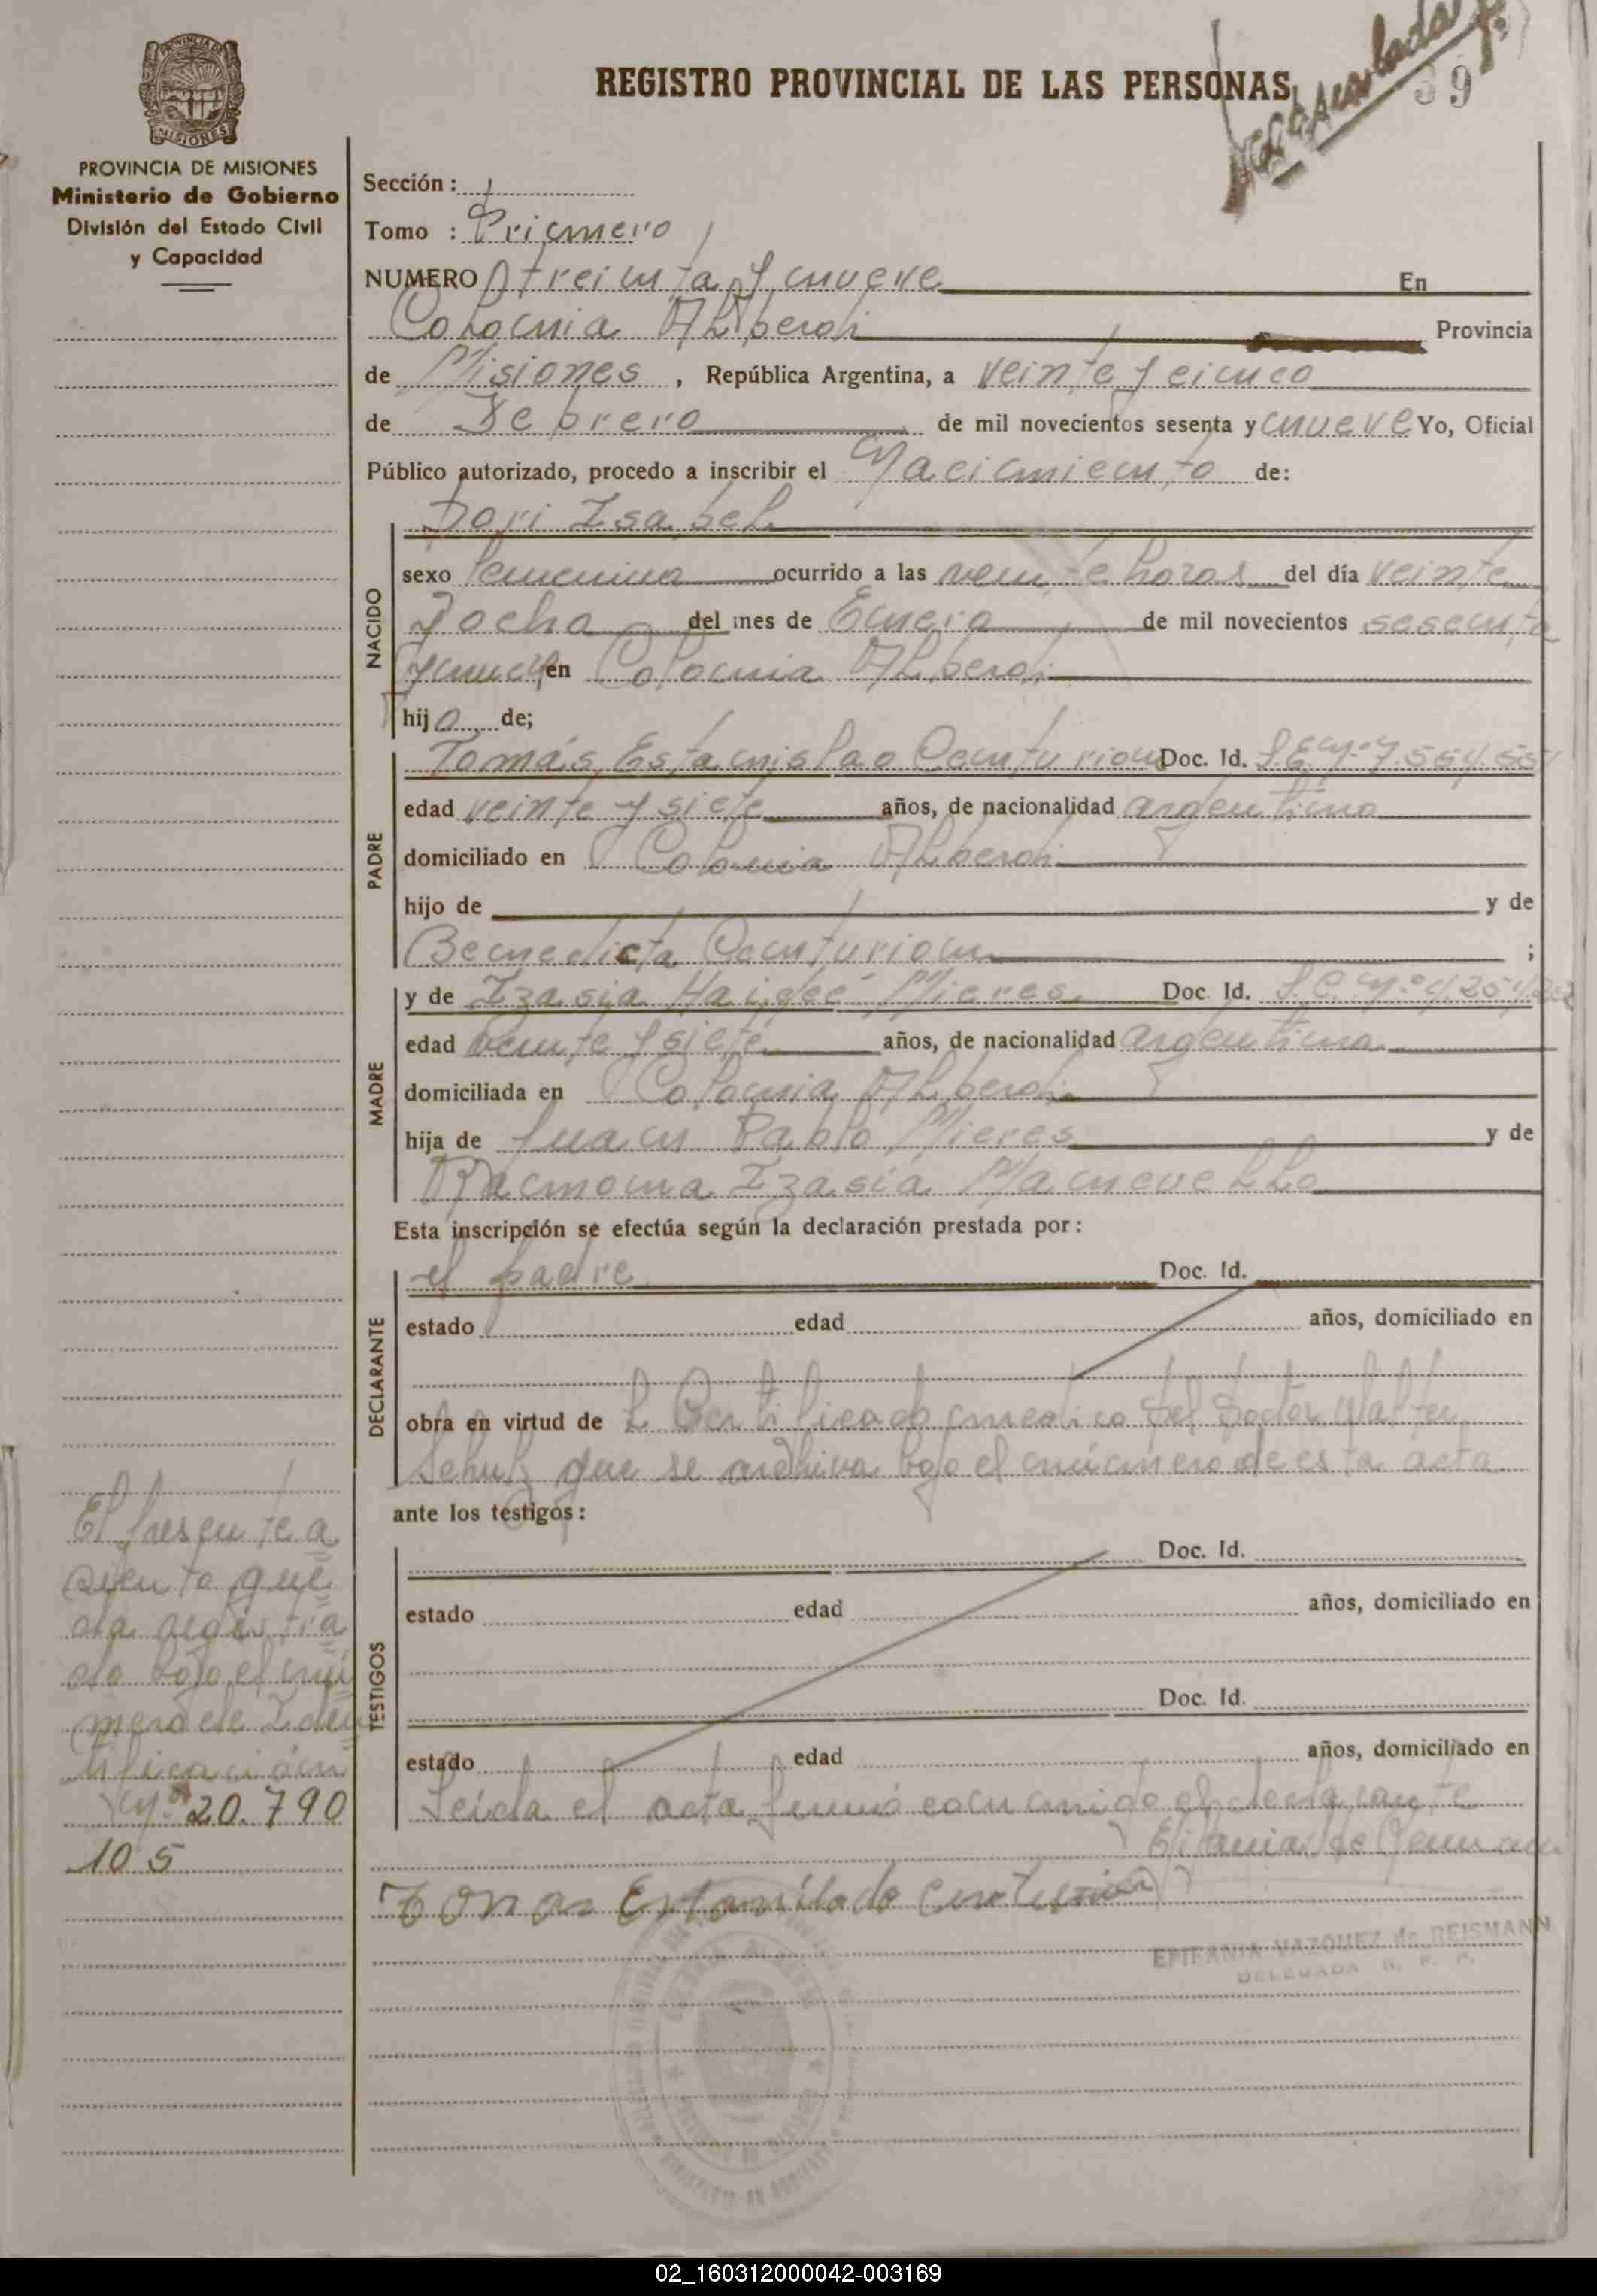 REGISTRO PROVINCIAL DE LAS PERSONAS
39
PROVINCIA DE MISIONES
PROVINCIA DE MISIONES
Ministerio de Gobierno
División del Estado Civil
y Capacidad
Sección : 1
Tomo : Primero
NUMERO treinta y nueve En
Colonia Alberdi Provincia
de Misiones , República Argentina, a veinte y cinco
de Febrero de mil novecientos sesenta y nueve Yo, Oficial
Público autorizado, procedo a inscribir el Nacimiento de:
NACIDO
Dori Isabel
sexo femenino ocurrido a las veinte horas del día veinte
y ocho del mes de Enero de mil novecientos sesenta
y nueve en Colonia Alberdi
hija de;
PADRE
Tomás Estanislao Centurion Doc. Id. L.E. Nº 7.554.55
edad veinte y siete años, de nacionalidad argentina
domiciliado en Colonia Alberdi
hijo de y de
Benedicta Centurion ;
MADRE
y de Izasia Haideé Mieres Doc. Id. L.C. Nº 4.254.
edad veinte y siete años, de nacionalidad argentina
domiciliada en Colonia Alberdi
hija de Juan Pablo Mieres y de
Ramona Izasia
Esta inscripción se efectúa según la declaración prestada por:
DECLARANTE
el padre Doc. Id.
estado edad años, domiciliado en
obra en virtud de l Certificado medico del Doctor Walter
que se archiva bajo el número de esta acta
ante los testigos:
TESTIGOS
Doc. Id.
estado edad años, domiciliado en
Doc. Id.
estado edad años, domiciliado en
Leida el acta firmó conmigo el declarante
El presente a
siento que
da registra
do bajo el nú
mero de Iden
tificación
Nº 20.790
105
EPIFANIA VAZQUEZ de REISMANN
DELEGADA R. P. P.
02_160312000042-003169